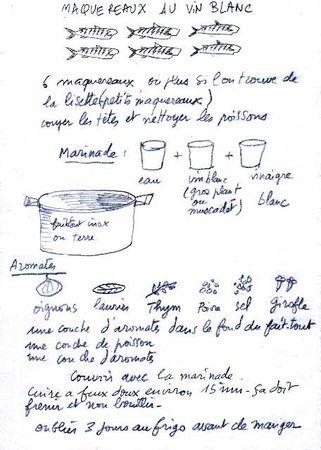 MAQUEREAUX AU VIN BLANC
6 maquereaux ou plus si l'on trouve de
la lisette (petits maquereaux)
couper les têtes et nettoyer les poissons
Marinade :
eau
vin blanc
(gros plant
ou
muscadet)
vinaigre
blanc
faitout inox
ou terre
Aromates
oignons laurier Thym Poivre sel Girofle
une couche d'aromates dans le fond du fait-tout
une couche de poisson
une couche d'aromates
Couvrir avec la marinade.
Cuire à feux doux environ 15 mn - ça doit
frémir et non bouillir -
oubliés 3 jours au frigo avant de manger